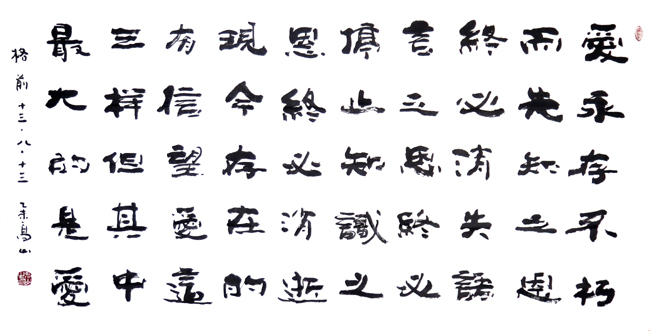 愛永存不朽
而先知之恩
終必消失語
言之恩終必
停止知識之
恩終必消逝
現今存在的
有信望愛這
三样但其中
最大的是愛
格前十三·八·十三 乙未高山